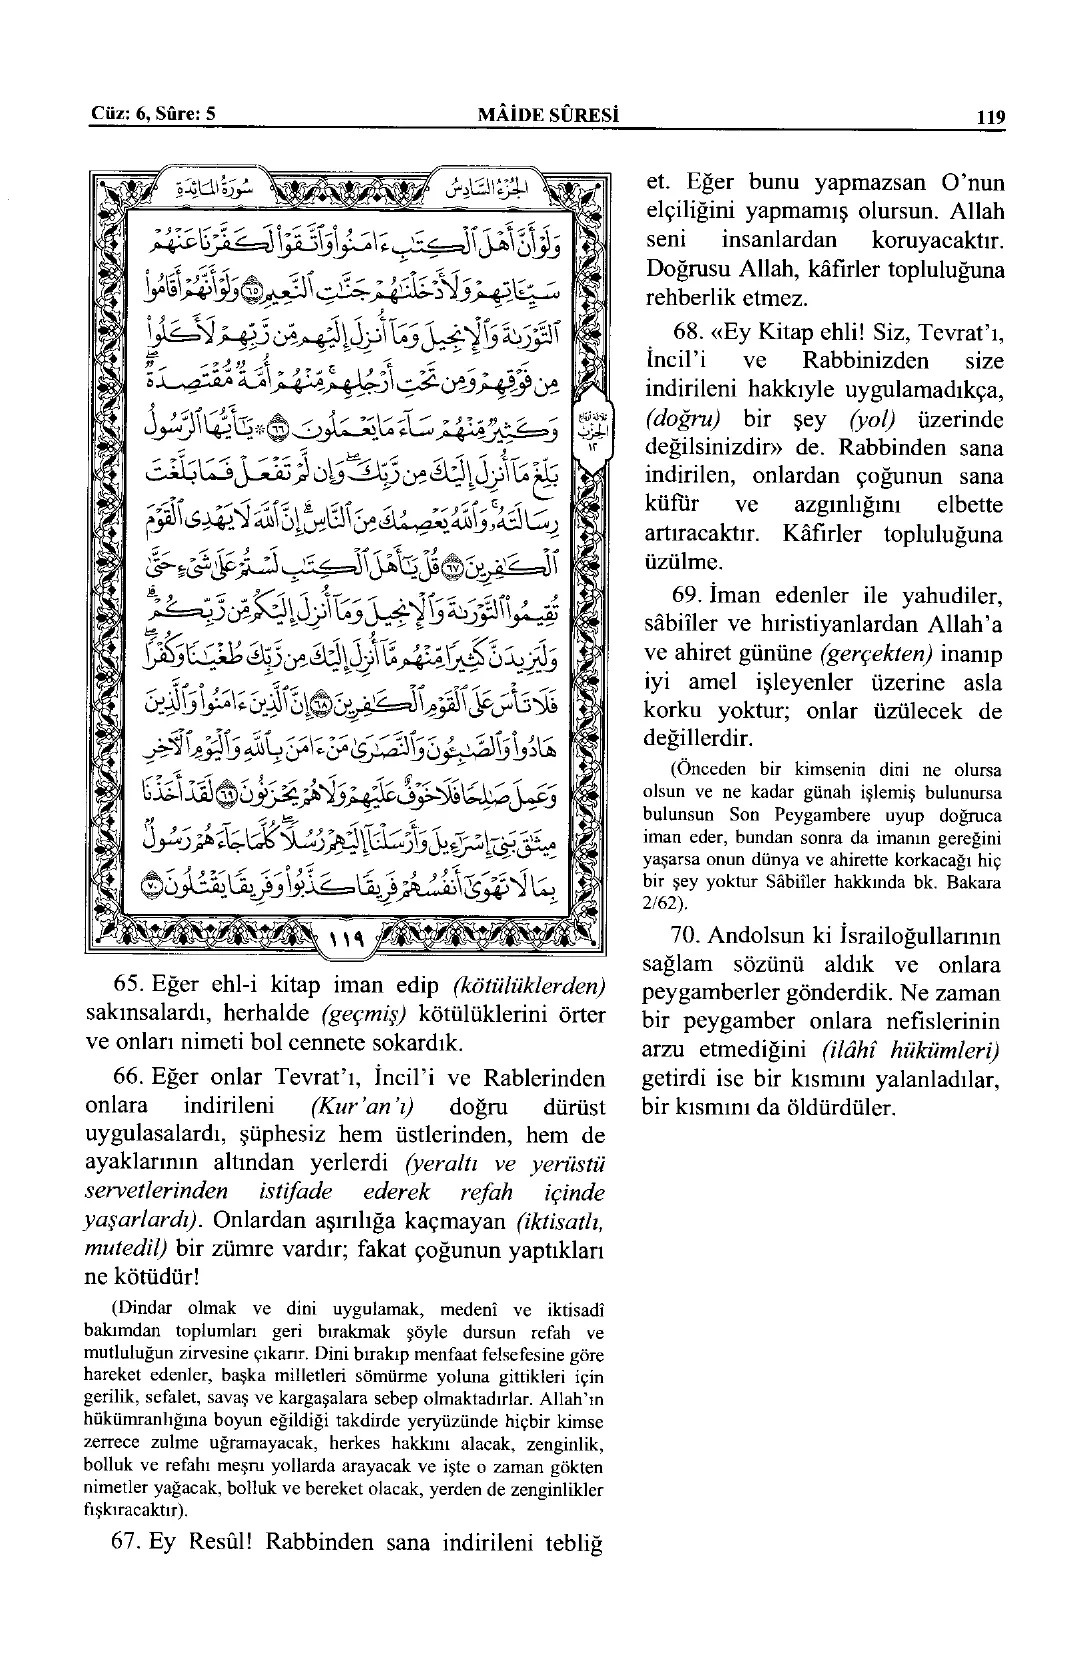 Cüz: 6, Sûre: 5
MÂİDE SÛRESİ
119
سُورَةُ المَائِدَة
الجُزْءُ السَّادِسُ
وَلَوْ أَنَّ أَهْلَ ٱلْكِتَٰبِ ءَامَنُوا۟ وَٱتَّقَوْا۟ لَكَفَّرْنَا عَنْهُمْ
سَيِّـَٔاتِهِمْ وَلَأَدْخَلْنَٰهُمْ جَنَّٰتِ ٱلنَّعِيمِ ٦٥ وَلَوْ أَنَّهُمْ أَقَامُوا۟
ٱلتَّوْرَىٰةَ وَٱلْإِنجِيلَ وَمَآ أُنزِلَ إِلَيْهِم مِّن رَّبِّهِمْ لَأَكَلُوا۟
مِن فَوْقِهِمْ وَمِن تَحْتِ أَرْجُلِهِم مِّنْهُمْ أُمَّةٌ مُّقْتَصِدَةٌ
وَكَثِيرٌ مِّنْهُمْ سَآءَ مَا يَعْمَلُونَ ٦٦ * يَٰٓأَيُّهَا ٱلرَّسُولُ
بَلِّغْ مَآ أُنزِلَ إِلَيْكَ مِن رَّبِّكَ وَإِن لَّمْ تَفْعَلْ فَمَا بَلَّغْتَ
رِسَالَتَهُۥ وَٱللَّهُ يَعْصِمُكَ مِنَ ٱلنَّاسِ إِنَّ ٱللَّهَ لَا يَهْدِى ٱلْقَوْمَ
ٱلْكَٰفِرِينَ ٦٧ قُلْ يَٰٓأَهْلَ ٱلْكِتَٰبِ لَسْتُمْ عَلَىٰ شَىْءٍ حَتَّىٰ
تُقِيمُوا۟ ٱلتَّوْرَىٰةَ وَٱلْإِنجِيلَ وَمَآ أُنزِلَ إِلَيْكُم مِّن رَّبِّكُمْ
وَلَيَزِيدَنَّ كَثِيرًا مِّنْهُم مَّآ أُنزِلَ إِلَيْكَ مِن رَّبِّكَ طُغْيَٰنًا وَكُفْرًا
فَلَا تَأْسَ عَلَى ٱلْقَوْمِ ٱلْكَٰفِرِينَ ٦٨ إِنَّ ٱلَّذِينَ ءَامَنُوا۟ وَٱلَّذِينَ
هَادُوا۟ وَٱلصَّٰبِـُٔونَ وَٱلنَّصَٰرَىٰ مَنْ ءَامَنَ بِٱللَّهِ وَٱلْيَوْمِ ٱلْءَاخِرِ
وَعَمِلَ صَٰلِحًا فَلَا خَوْفٌ عَلَيْهِمْ وَلَا هُمْ يَحْزَنُونَ ٦٩ لَقَدْ أَخَذْنَا
مِيثَٰقَ بَنِىٓ إِسْرَٰٓءِيلَ وَأَرْسَلْنَآ إِلَيْهِمْ رُسُلًا كُلَّمَا جَآءَهُمْ رَسُولٌۢ
بِمَا لَا تَهْوَىٰٓ أَنفُسُهُمْ فَرِيقًا كَذَّبُوا۟ وَفَرِيقًا يَقْتُلُونَ ٧٠
الحِزْبِ
١٢
١١٩
65. Eğer ehl-i kitap iman edip (kötülüklerden)
sakınsalardı, herhalde (geçmiş) kötülüklerini örter
ve onları nimeti bol cennete sokardık.
66. Eğer onlar Tevrat’ı, İncil’i ve Rablerinden
onlara indirileni (Kur’an’ı) doğru dürüst
uygulasalardı, şüphesiz hem üstlerinden, hem de
ayaklarının altından yerlerdi (yeraltı ve yerüstü
servetlerinden istifade ederek refah içinde
yaşarlardı). Onlardan aşırılığa kaçmayan (iktisatlı,
mutedil) bir zümre vardır; fakat çoğunun yaptıkları
ne kötüdür!
(Dindar olmak ve dini uygulamak, medenî ve iktisadî
bakımdan toplumları geri bırakmak şöyle dursun refah ve
mutluluğun zirvesine çıkarır. Dini bırakıp menfaat felsefesine göre
hareket edenler, başka milletleri sömürme yoluna gittikleri için
gerilik, sefalet, savaş ve kargaşalara sebep olmaktadırlar. Allah’ın
hükümranlığına boyun eğildiği takdirde yeryüzünde hiçbir kimse
zerrece zulme uğramayacak, herkes hakkını alacak, zenginlik,
bolluk ve refahı meşru yollarda arayacak ve işte o zaman gökten
nimetler yağacak, bolluk ve bereket olacak, yerden de zenginlikler
fışkıracaktır).
67. Ey Resûl! Rabbinden sana indirileni tebliğ
et. Eğer bunu yapmazsan O’nun
elçiliğini yapmamış olursun. Allah
seni insanlardan koruyacaktır.
Doğrusu Allah, kâfirler topluluğuna
rehberlik etmez.
68. «Ey Kitap ehli! Siz, Tevrat’ı,
İncil’i ve Rabbinizden size
indirileni hakkıyle uygulamadıkça,
(doğru) bir şey (yol) üzerinde
değilsinizdir» de. Rabbinden sana
indirilen, onlardan çoğunun sana
küfür ve azgınlığını elbette
artıracaktır. Kâfirler topluluğuna
üzülme.
69. İman edenler ile yahudiler,
sâbiîler ve hıristiyanlardan Allah’a
ve ahiret gününe (gerçekten) inanıp
iyi amel işleyenler üzerine asla
korku yoktur; onlar üzülecek de
değillerdir.
(Önceden bir kimsenin dini ne olursa
olsun ve ne kadar günah işlemiş bulunursa
bulunsun Son Peygambere uyup doğruca
iman eder, bundan sonra da imanın gereğini
yaşarsa onun dünya ve ahirette korkacağı hiç
bir şey yoktur Sâbiîler hakkında bk. Bakara
2/62).
70. Andolsun ki İsrailoğullarının
sağlam sözünü aldık ve onlara
peygamberler gönderdik. Ne zaman
bir peygamber onlara nefislerinin
arzu etmediğini (ilâhî hükümleri)
getirdi ise bir kısmını yalanladılar,
bir kısmını da öldürdüler.